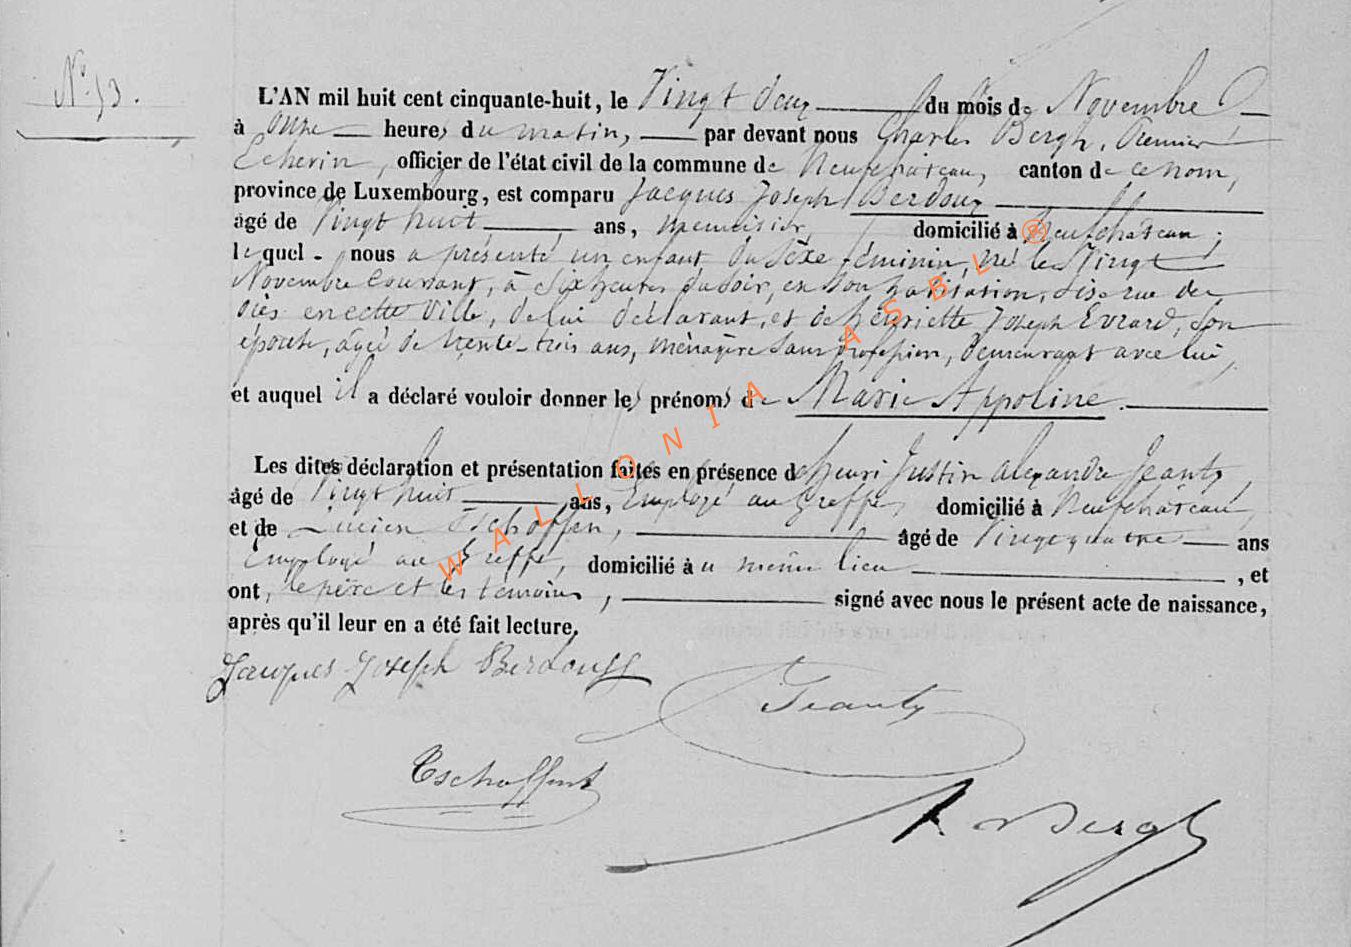 N° 53.
L'AN mil huit cent cinquante-huit, le Vingt deux du mois de Novembre
à onze heures du matin, par devant nous Charles Bergh, Premier
Echevin, officier de l'état civil de la commune de Neufchâteau, canton de ce nom,
province de Luxembourg, est comparu Jacques Joseph Berdoux
âgé de Vingt huit ans, menuisier, domicilié à Neufchâteau;
lequel nous a présenté un enfant du Sexe féminin, né le Vingt
Novembre Courant, à Six heures du soir, en son habitation, sise rue des
en cette Ville, de lui déclarant, et de henriette Joseph Evrard, Son
épouse, âgée de trente-trois ans, ménagère sans profession, demeurant avec lui,
et auquel il a déclaré vouloir donner les prénoms de Marie Appoline.
Les dites déclaration et présentation faites en présence de henri Justin alexandre Jeanty,
âgé de Vingt huit ans, Employé au Greffe, domicilié à Neufchâteau,
et de Lucien Tschoffen, âgé de Vingt quatre ans
Employé au Greffe, domicilié au même lieu, et
ont, le père et les témoins, signé avec nous le présent acte de naissance,
après qu'il leur en a été fait lecture.
Jacques Joseph Berdoux
Jeanty
Tschoffen
Bergh
WALLONIA ASBL ®